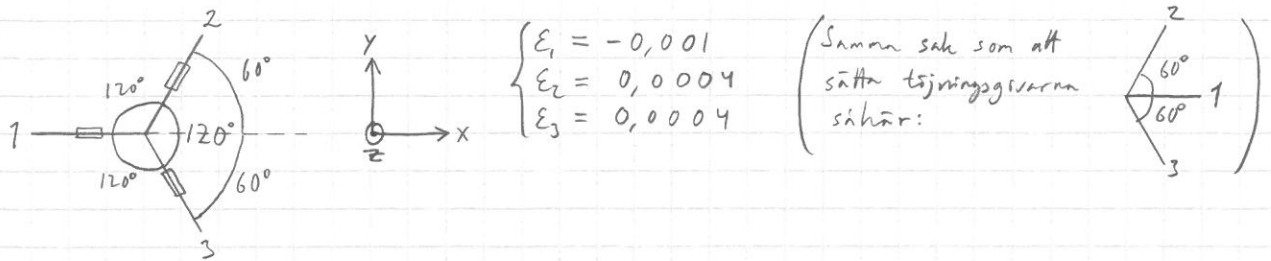 2
120° 60°
1 120°
120° 60°
3
y
x
z
ε₁ = -0,001
ε₂ = 0,0004
ε₃ = 0,0004
(Samma sak som att
sätta töjningsgivarna
såhär:
2
60°
1
60°
3
)